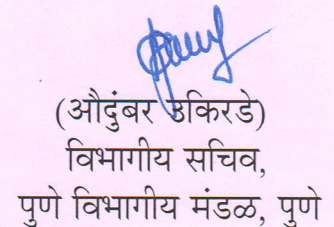 (औदुंबर उकिरडे)
विभागीय सचिव,
पुणे विभागीय मंडळ, पुणे